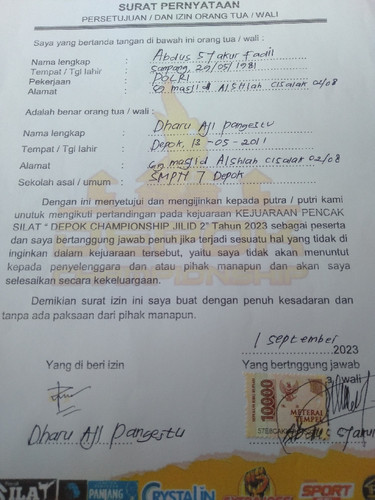 SURAT PERNYATAAN
PERSETUJUAN / DAN IZIN ORANG TUA / WALI
Saya yang bertanda tangan di bawah ini orang tua / wali :
Nama lengkap : Abdus Syakur Fadil
Tempat / Tgl lahir : Sampang, 29/05/1981
Pekerjaan : POLRI
Alamat : Gn masjid Alshlah cisalak 02/08
Adalah benar orang tua / wali :
Nama lengkap : Dharu Aji Pangestu
Tempat / Tgl lahir : Depok, 13-05-2011
Alamat : Gn masjid Alshlah cisalak 02/08
Sekolah asal / umum : SMPN 7 Depok
Dengan ini menyetujui dan mengijinkan kepada putra / putri kami
unutuk mengikuti pertandingan pada kejuaraan KEJUARAAN PENCAK
SILAT " DEPOK CHAMPIONSHIP JILID 2" Tahun 2023 sebagai peserta
dan saya bertanggung jawab penuh jika terjadi sesuatu hal yang tidak di
inginkan dalam kejuaraan tersebut, yaitu saya tidak akan menuntut
kepada penyelenggara dan atau pihak manapun dan akan saya
selesaikan secara kekeluargaan.
Demikian surat izin ini saya buat dengan penuh kesadaran dan
tanpa ada paksaan dari pihak manapun.
1 september 2023
Yang di beri izin
Yang bertnggung jawab
/ wali
10000
METERAI
TEMPEL
Dharu Aji Pangestu
Abdus Syakur
SILAT
PANJANG
CRYSTALIN
SPORT